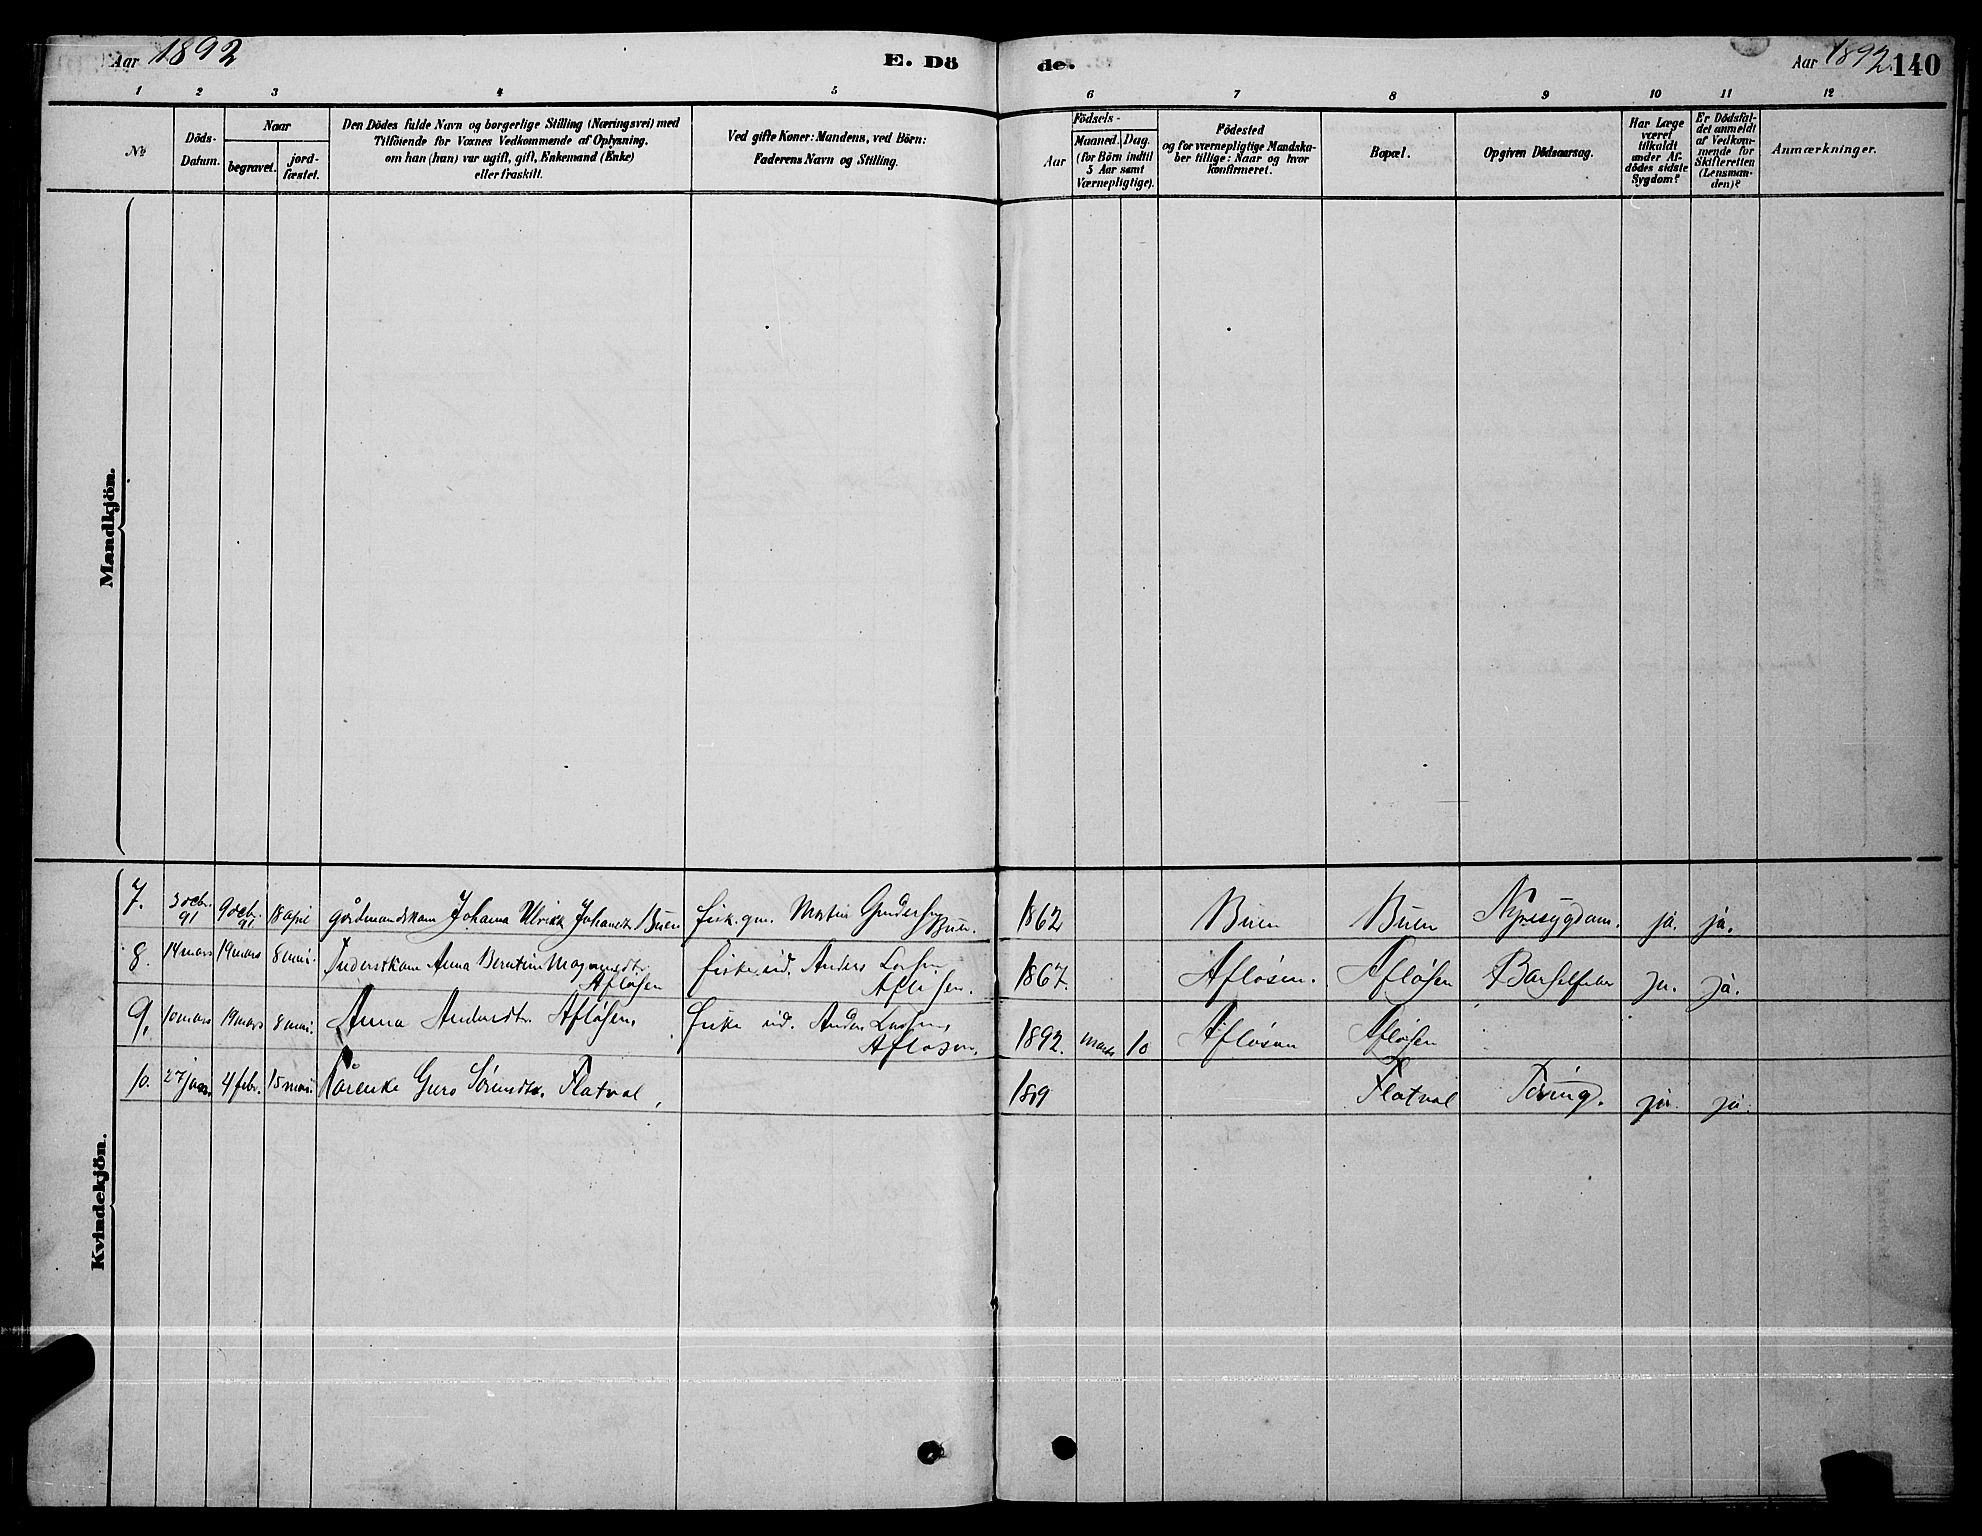 Aar 1892
E. Dö
de.
Aar 1892.
140
1 2 3 4 5 6 7 8 9 10 11 12
№
Döds-
Datum.
Naar
begravet.
jord-
fæstet.
Den Dödes fulde Navn og borgerlige Stilling (Næringsvei) med
Tilföiende for Voxnes Vedkommende af Oplysning,
om han (hun) var ugift, gift, Enkemand (Enke)
eller fraskilt.
Ved gifte Koner: Mandens, ved Börn:
Faderens Navn og Stilling.
Födsels-
Aar
Maaned. Dag.
(for Börn indtil
5 Aar samt
Værnepligtige).
Födested
og for værnepligtige Mandska-
ber tillige: Naar og hvor
konfirmeret.
Bopæl.
Opgiven Dödsaarsag.
Har Læge
været
tilkaldt
under Af-
dödes sidste
Sygdom?
Er Dödsfal-
det anmeldt
af Vedkom-
mende for
Skifteretten
(Lensman-
den)?
Anmærkninger.
Mandkjön.
Kvindekjön.
7. 3 decbr. 91 9 decbr. 91 18 april gårdmandskone Johanna Ulrikke Johansdtr Buen Martin Buen. 1862 Buen Buen Nyresygdom. ja. ja.
8. 14 mars 19 mars 8 mai. Anna Magnusdtr.
Afløsen Anders
Afløsen. 1867. Afløsen. Afløsen Barselfeber ja. ja.
9. 10 mars 19 mars 8 mai. Anna Andersdtr. Afløsen, Anders
Afløsen. 1892. Marts 10 Afløsen Afløsen
10. 27 jan. 4 febr. 15 mai. Guro Flatval, Flatval Tæring. ja. ja.